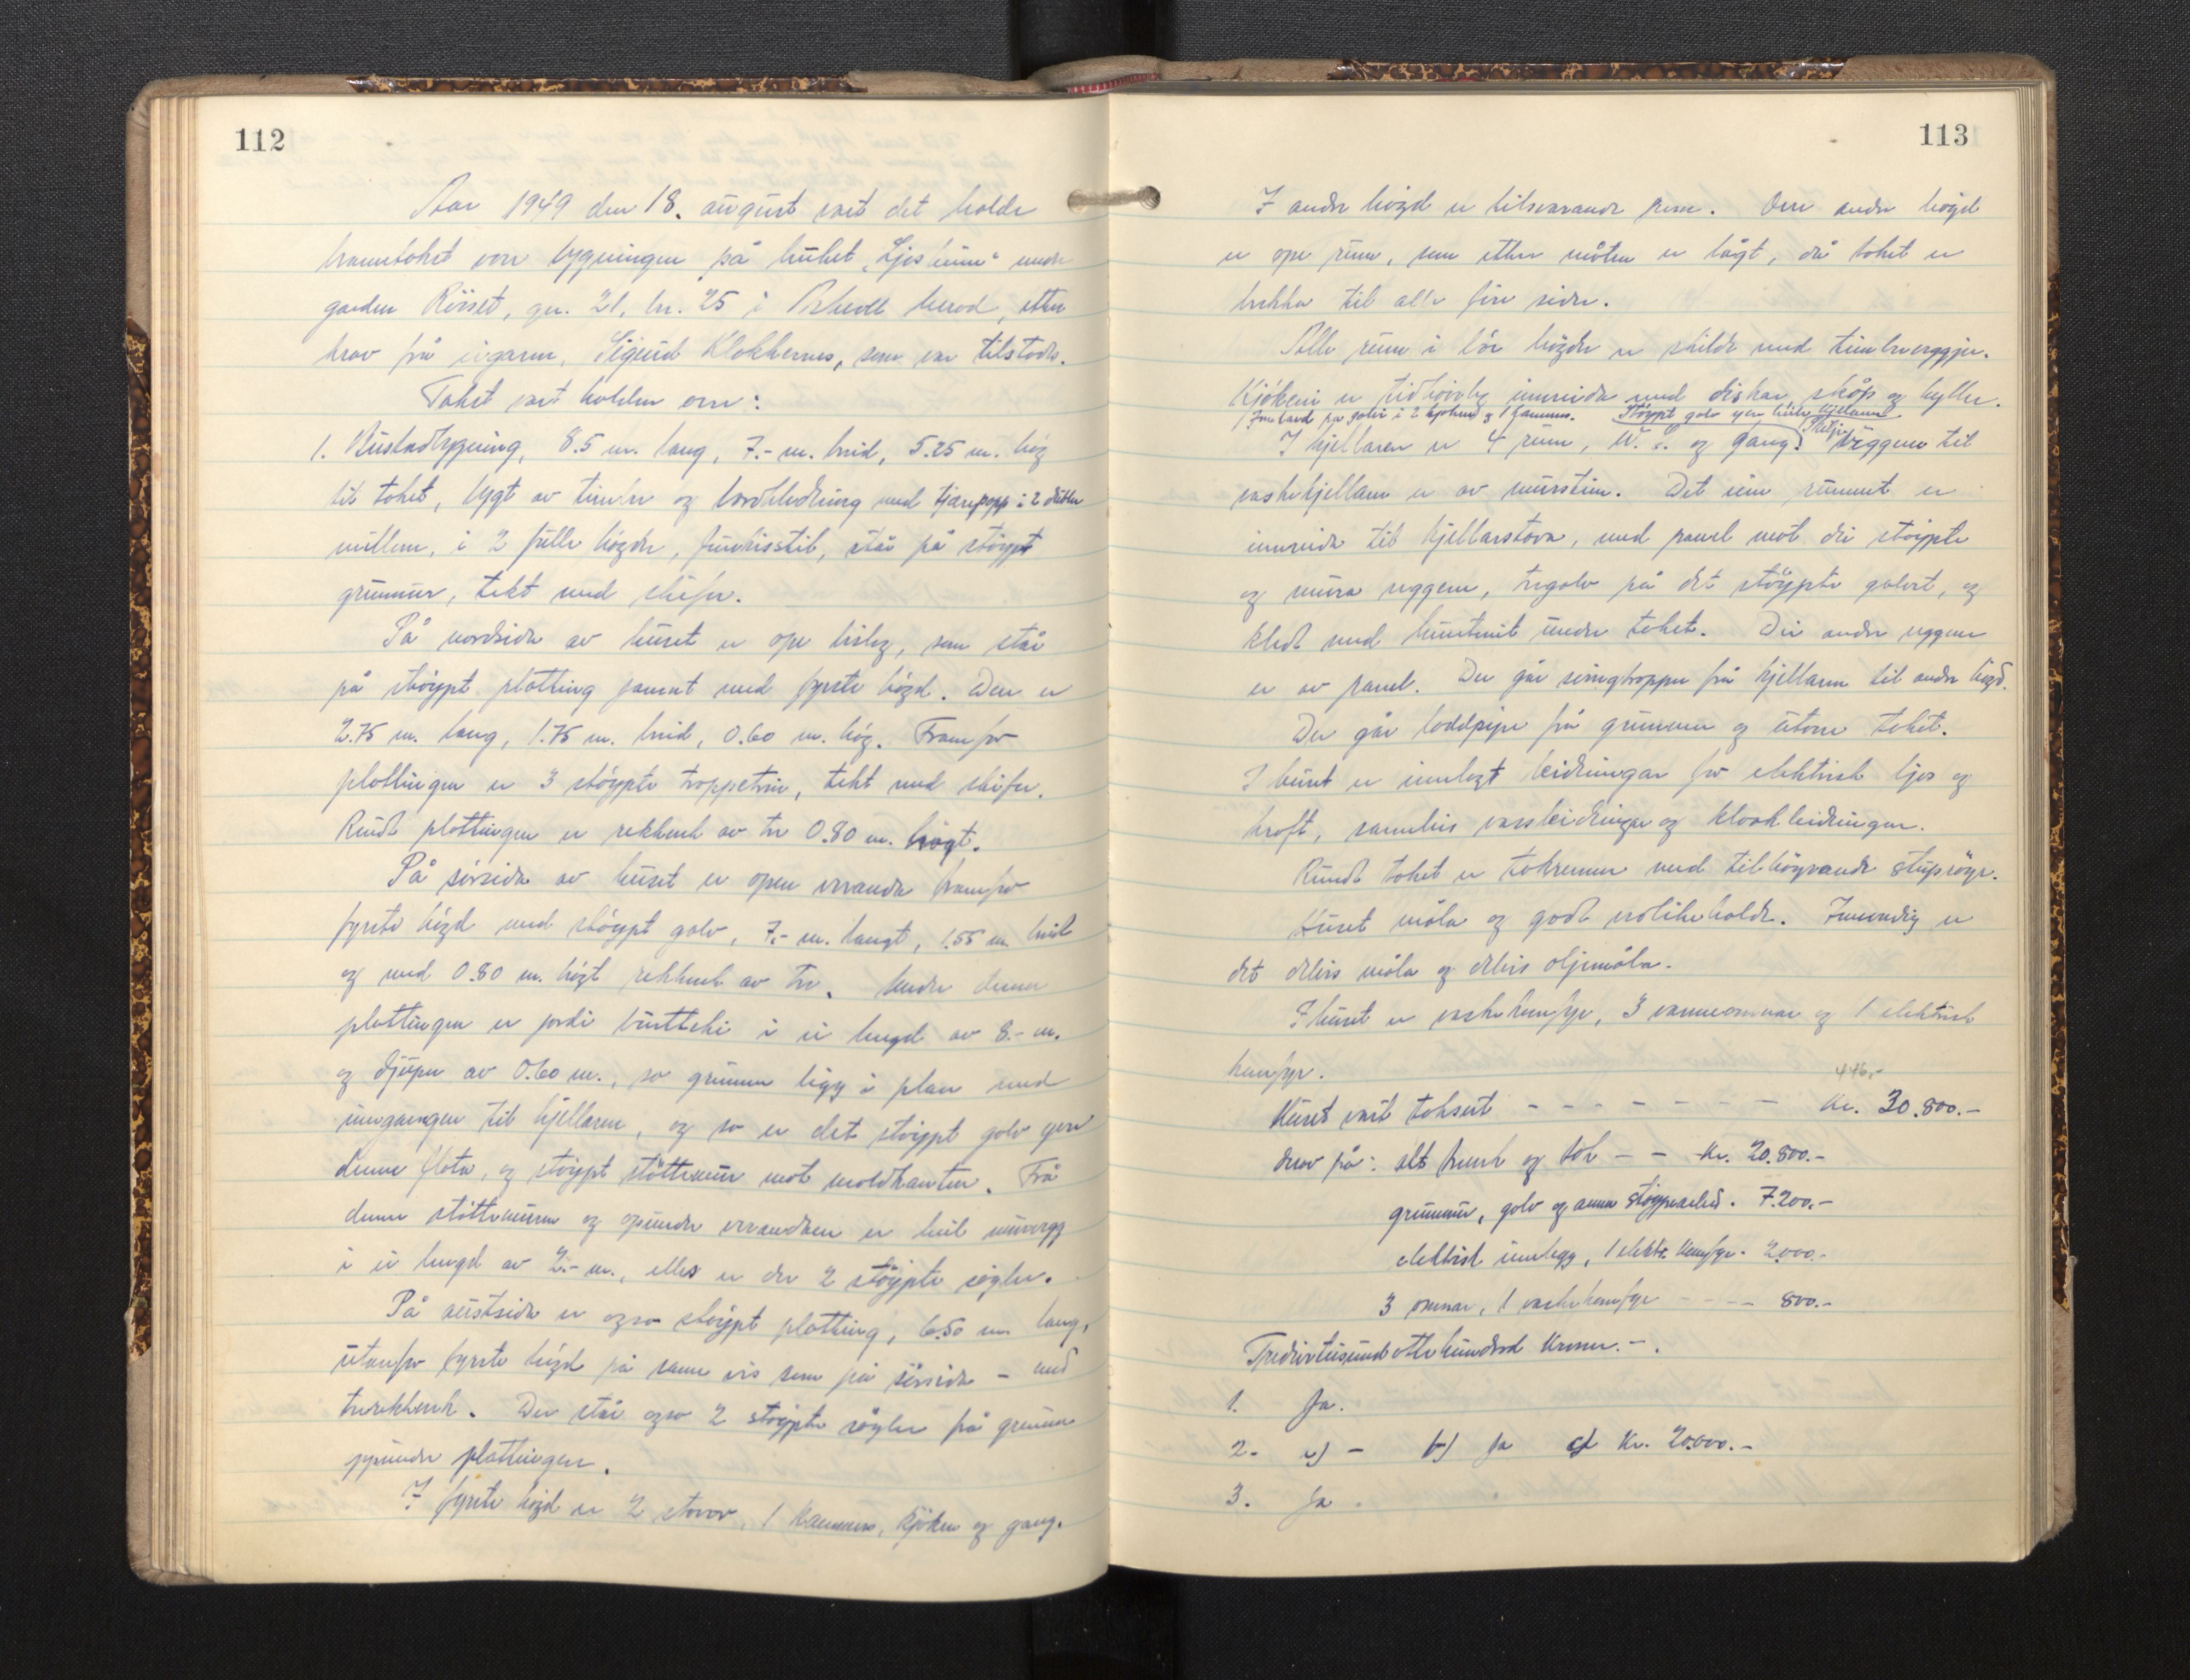 112
Aar 1949 den 18. august vart det halde
branntakst over bygningen på bruket "Ljosheim" under
garden Røiset, gn. 21, br. 25 i herad, etter
krav frå eigaren, Sigurd Klokkernes, som var tilstades.
Takst vart halden over:
1. Bustadbygning, 8.5 m. lang, 7.- m. breid, 5.25 m. høg
til taket, bygt av timbr og bordkledning med tjærepapp i 2 dublar
millom, i 2 fulle høgder, funkisstil, står på støypt
grunnmur, tekt med skifer.
På nordsida av huset er ope bislag, som står
på støypt platting jamnt med fyrste høgd. Den er
2.75 m. lang, 1.75 m. breid, 0.60 m. høg. Framfor
plattingen er 3 støypte troppetrin, tekt med skifer.
Rundt plattingen er rekkverk av tre 0.80 m. høgt.
På sørsida av huset er open veranda framfor
fyrste høgd med støypt golv, 7.- m. langt, 1.55 m. breidt
og med 0.80 m. høgt rekkverk av tre. Under denne
plattingen er jordi burtteki i ei lengd av 8.- m.
og djupn av 0.60 m., so grunnen ligg i plan med
inngangen til kjellaren, og so er det støypt golv yver
denne flata, og støypt støttemur mot moldkanten. Frå
denne støttemuren og upunder verandaen er heil murvegg
i ei lengd av 2.- m., elles er der 2 støypte søyler.
På austsida er ogso støypt platting, 6.50 m. lang,
utanfor fyrste høgd på same vis som på sørsida - med
trerekkverk. Der står ogso 2 støypte søyler frå grunnen
upunder plattingen.
I fyrste høgd er 2 stovor, 1 kammers, kjøken og gang.
113
I andre høgd er tilsvarande rom. Over andre høgd
er ope rum, som etter måten er lågt, då taket er
brekka til alle fire sider.
Alle rum i båe høgder er skilde med timbrveggjer.
Kjøkeni er tidhøvleg innreida med diskar, skåp og hyller.
Støypt golv yver heile kjellaren.
I kjellaren er 4 rum, W. C. og gang. Skiljeveggene til
vaskekjellaren er av murstein. Det eine rummet er
innreida til kjellarstova, med panel mot dei støypte
og mura veggene, tregolv på det støypte golvet, og
kledt med huntonit under taket. Dei andre veggene
er av panel. Der går svingtroppa frå kjellaren til andre høgd.
Der går loddpipe frå grunnen og utover taket.
I huset er innlagt leidningar for elektrisk ljos og
kraft, samleis vassleidningar og kloakkleidningar.
Rundt taket er takrenner med tilhøyrande stupsrøyr.
Huset måla og godt vedlikehalde. Innvendig er
det delvis måla og delvis oljemåla.
I huset er vaskekomfyr, 3 vanneomnar og 1 elektrisk
komfyr.
446.-
Huset vart taksert - - - - - - - - Kr. 30.800.-
derav på: alt treverk og tak - - Kr. 20.800.-
grunnmur, golv og anna støypearbeid. 7.200.-
elektrisk innlegg, 1 elektr. komfyr. 2.000.-
3 omnar, 1 vaskekomfyr - - - - 800.-
Tredivetusundåttehundred kroner.-.
1. Ja.
2. a) - b) Ja c) Kr. 20.000.-
3. Ja.